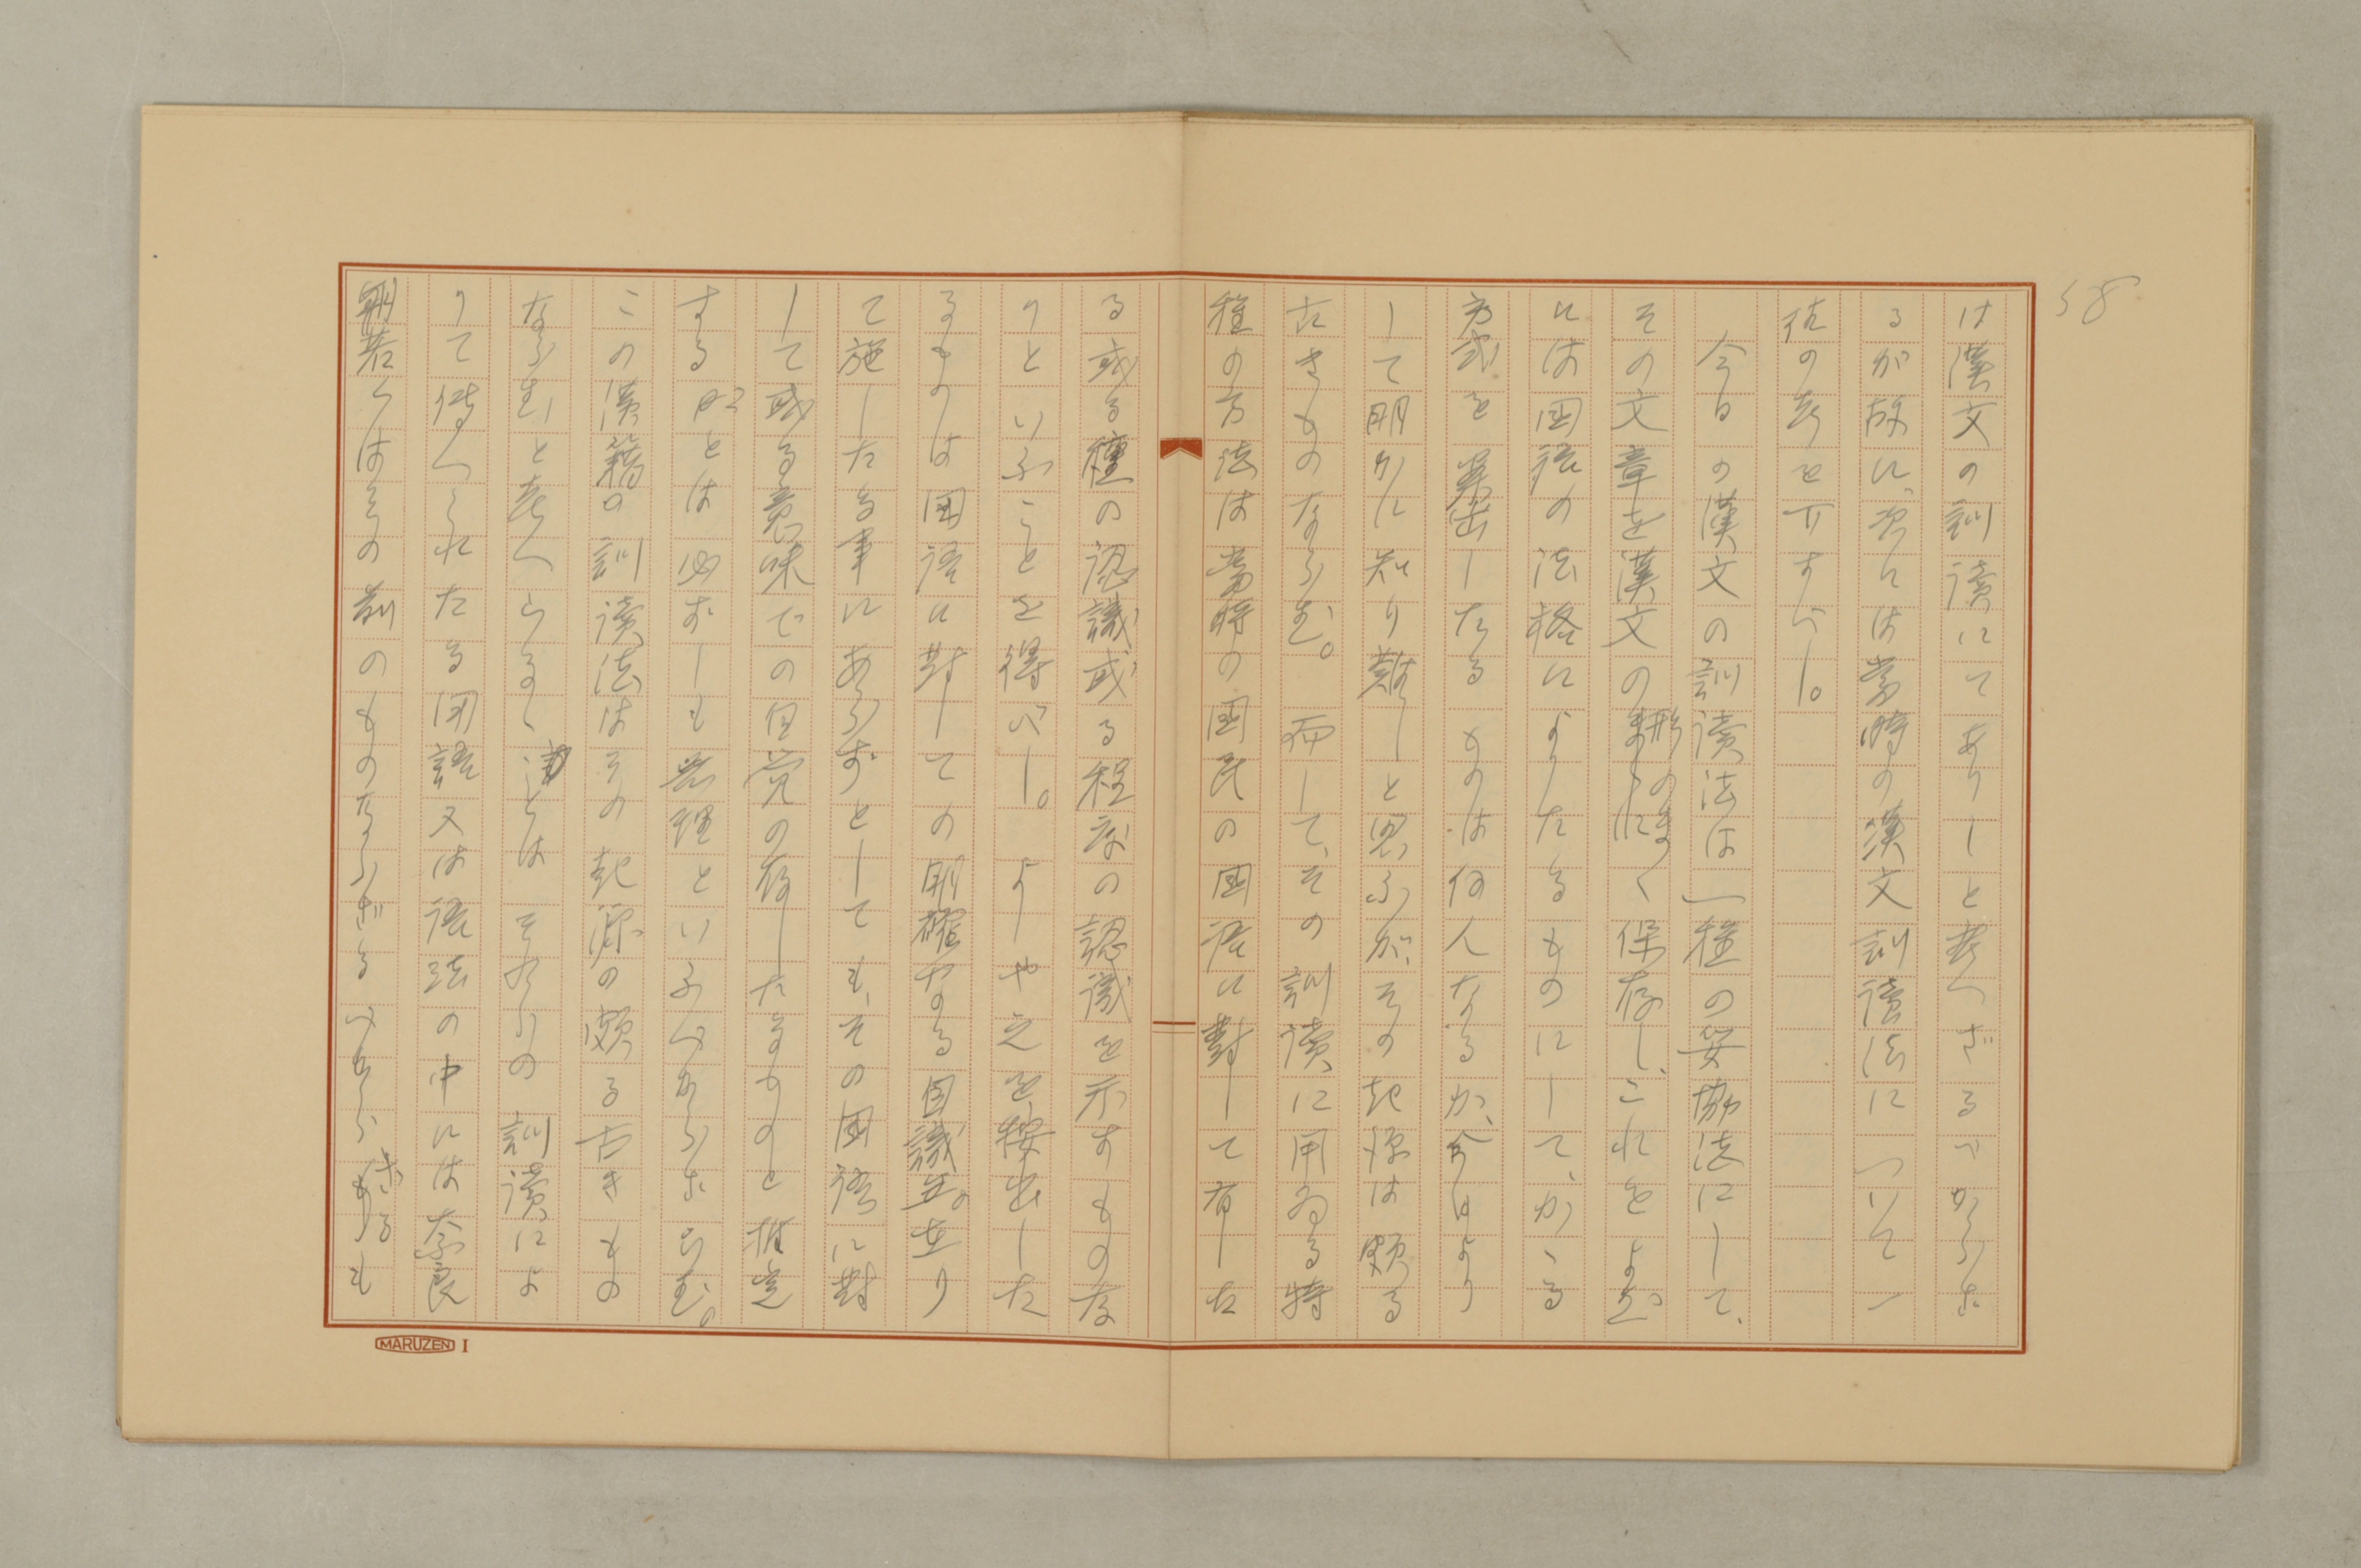 58
は漢文の訓讀にてありしと考へざるべからざ
るが故に、次には當時の漢文訓讀法について一
往の考を下すべし。
今日の漢文の訓讀法は一種の妥協法にして、
その文章を漢文の形のまゝに保存し、これをよむ
には国語の法格によりたるものにして、かゝる
方式を案出したるものは何人なるか、今日より
して明かに知り難しと思ふが、その起源は頗る
古きものならむ。而して、その訓讀に用ゐる特
種の方法は當時の国民の国語に對して有した
る或る種の認識或る程度の認識を示すものな
りといふことを得べし。よしや之を按出した
るものは国語に對しての明確なる国識の立り
て施したる事にあらずとしても、その国語に對
して或る意味での自覚の存したるものと推定
することは必ずしも無理といふべからざらむ。
この漢籍の訓讀法はその起源の頗る古きもの
ならむと考へらるゝ
とは それらの訓讀によ
りて傳へられたる国語又は語法の中には奈良
朝若くはその前のものなるべから
も
MARUZEN I